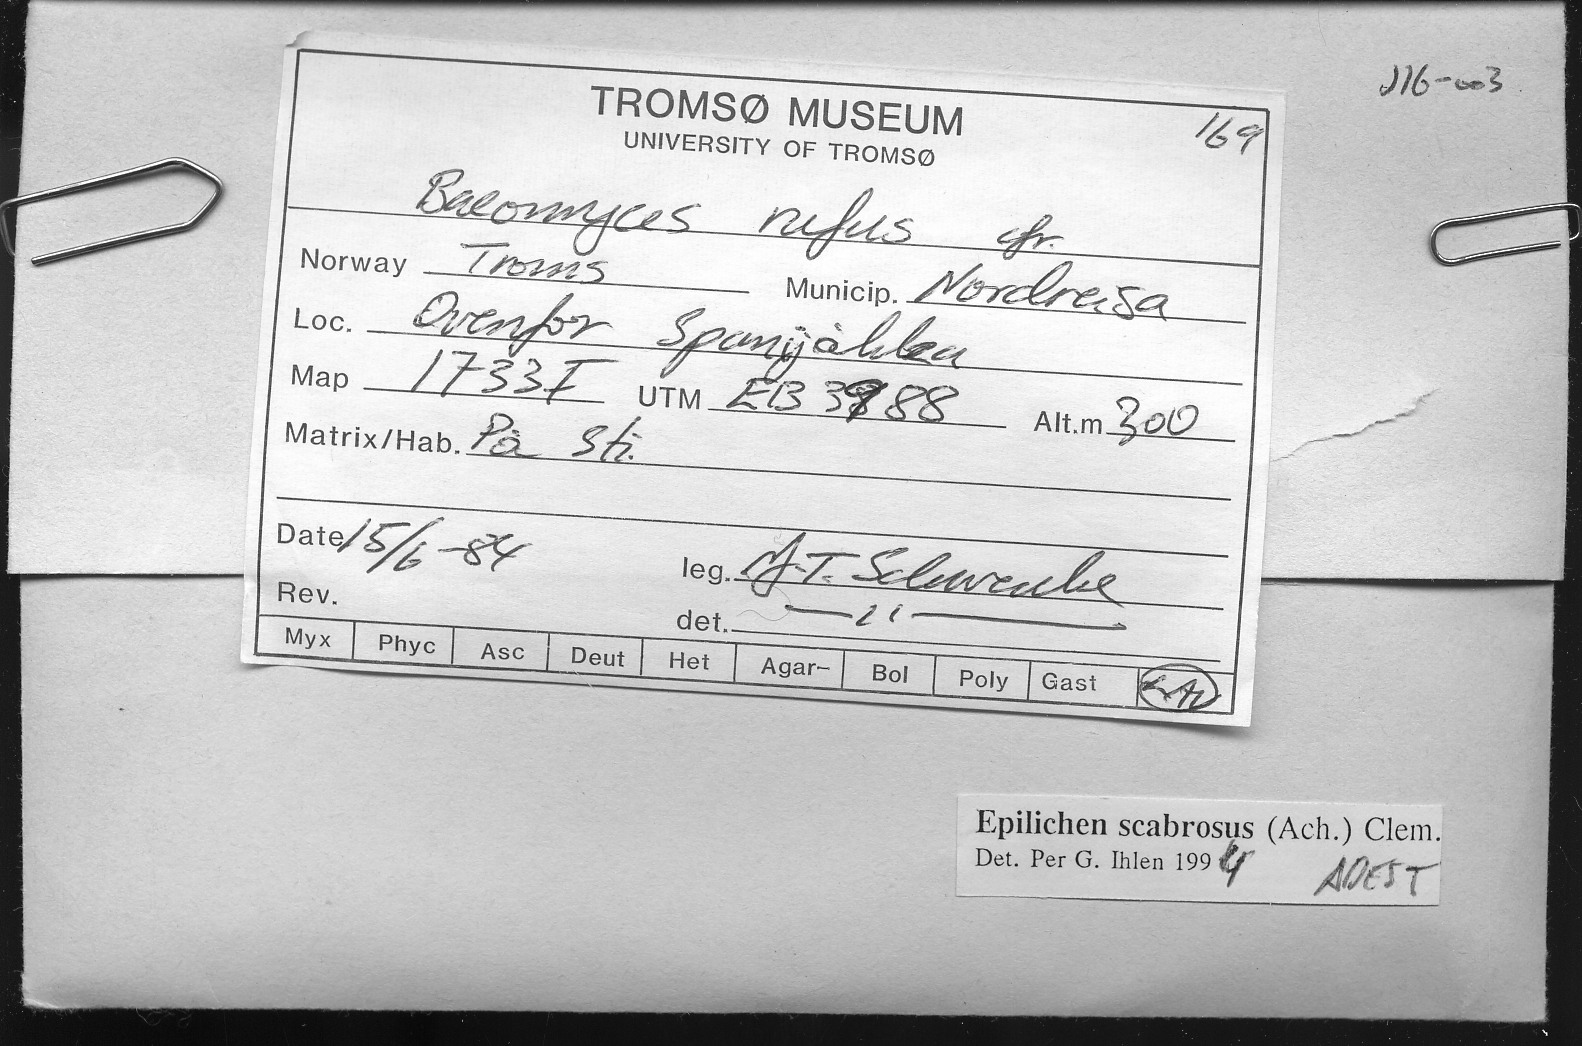 J16-003
TROMSØ MUSEUM
169
UNIVERSITY OF TROMSØ
Baeomyces rufus cfr.
Norway Troms Municip. Nordreisa
Loc. Ovenfor
Map 1733 I UTM EB 88 Alt.m 300
Matrix/Hab. På sti.
Date 15/6-84 leg. T. Schwenke
Rev. det. —〃—
Myx Phyc Asc Deut Het Agar– Bol Poly Gast
Epilichen scabrosus (Ach.) Clem.
Det. Per G. Ihlen 1994 ADEST